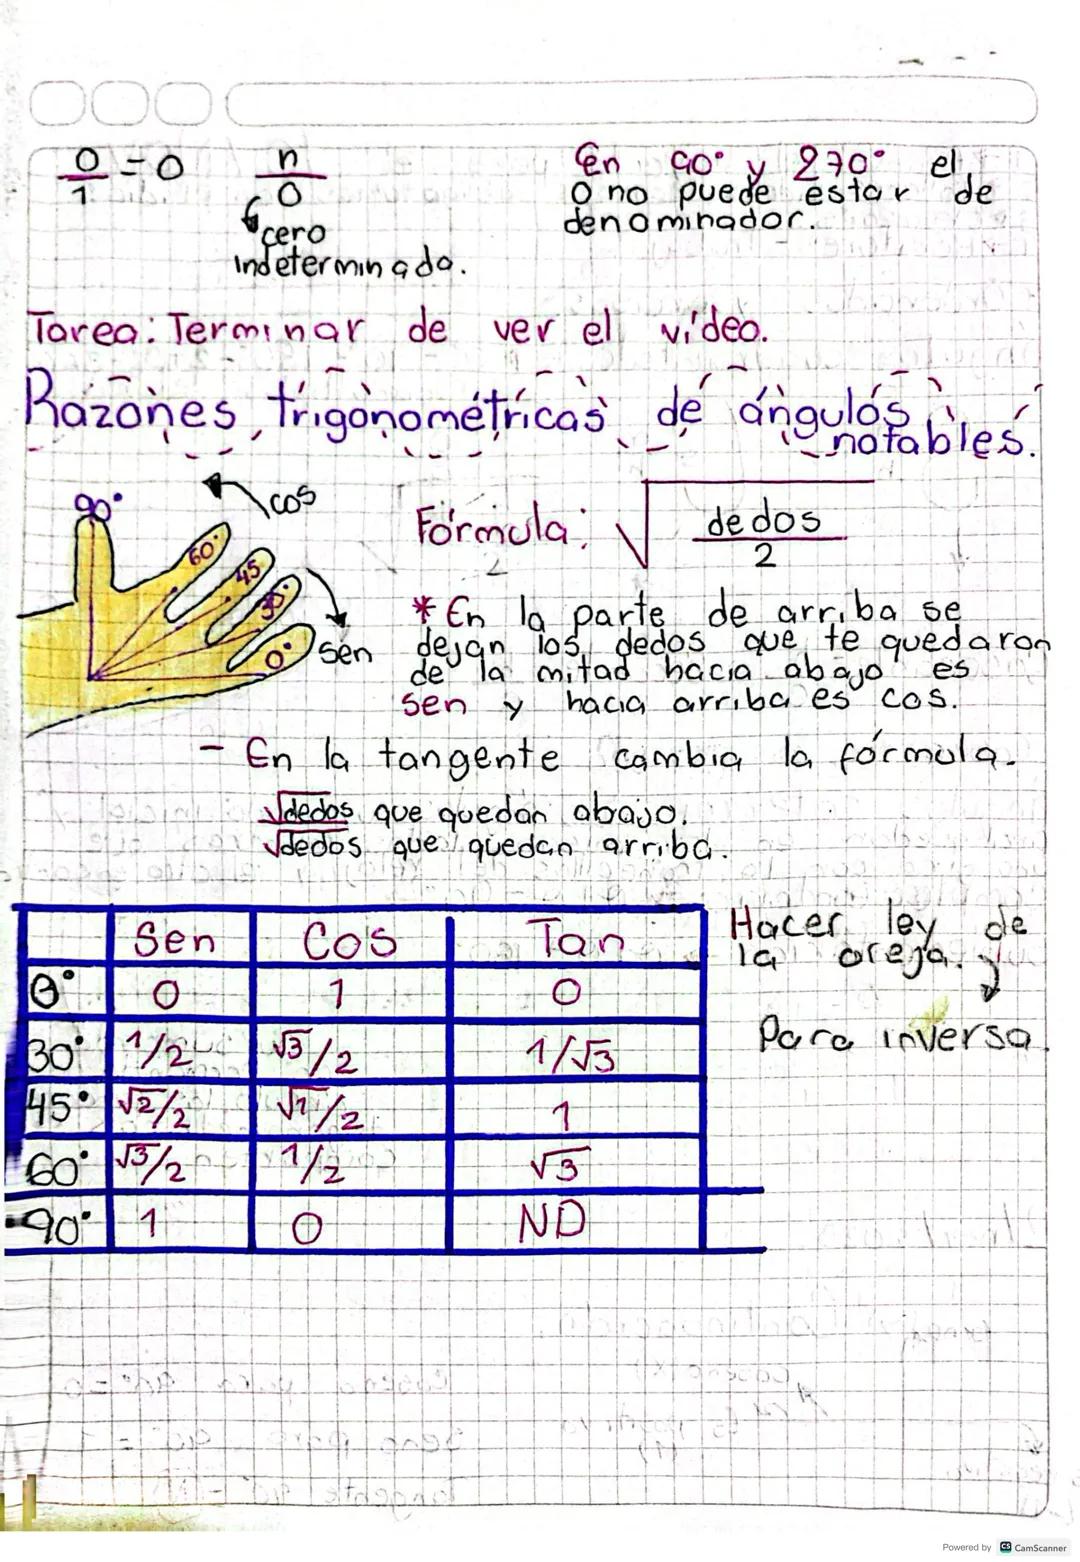 0/1 = 0
n/0
cero
indeterminado.
En 90° y 270° el
0 no puede estar de
denominador.
Tarea: Terminar de ver el video.
Razones trigonométricas de ángulos
notables.
90°
cos
60°
45
30°
0°
sen
Fórmula: √ dedos/2
* En la parte de arriba se
dejan los dedos que te quedaron
de la mitad hacia abajo es
sen y hacia arriba es cos.
- En la tangente cambia la fórmula.
√dedos que quedan abajo.
√dedos que quedan arriba.
Sen Cos Tan
0° 0 1 0
30° 1/2 √3/2 1/√3
45° √2/2 √2/2 1
60° √3/2 1/2 √3
90° 1 0 ND
Hacer ley de
la oreja.
Para inversa.
Powered by CS CamScanner